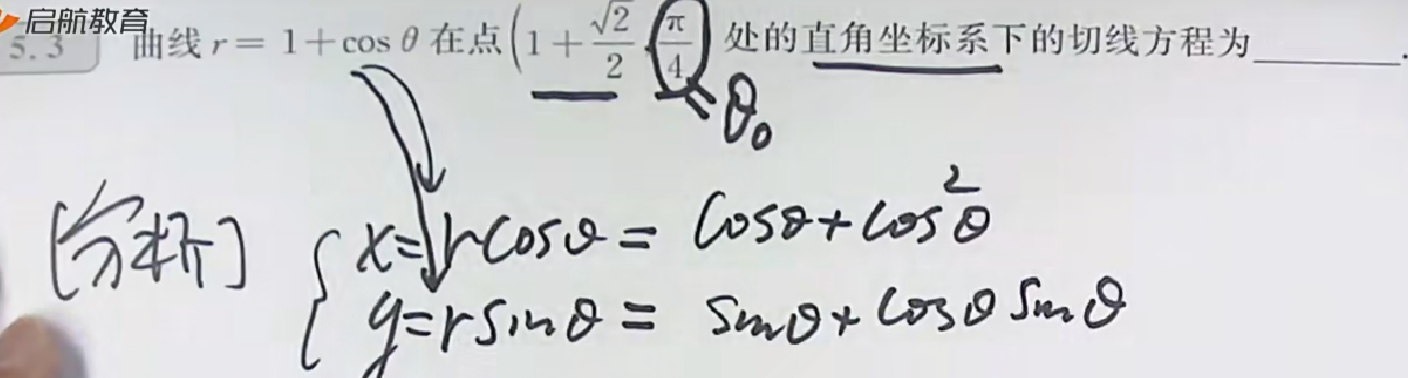 启航教育
5.3 曲线 r = 1 + cos θ 在点 (1 + √2/2, π/4) 处的直角坐标系下的切线方程为______.
= θ₀
[分析] { x = r cosθ = cosθ + cos²θ
y = r sinθ = sinθ + cosθ sinθ